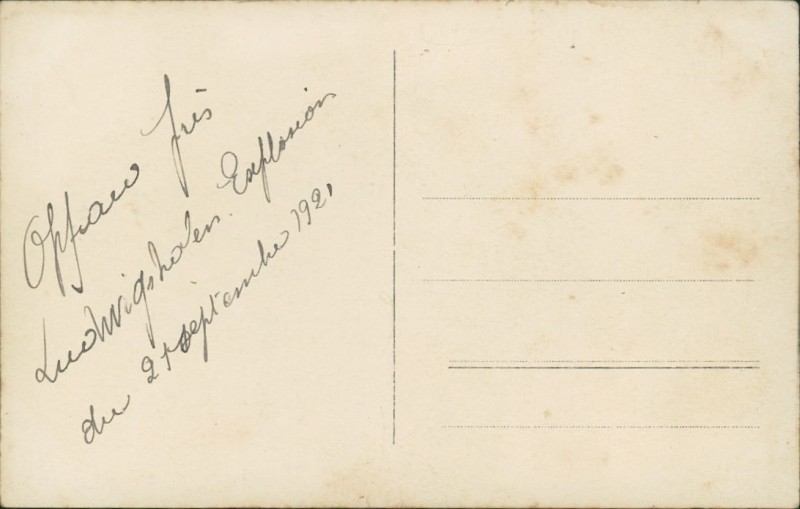 Oppaw près
Ludwigshafen. Explosion
du 21 septembre 1921